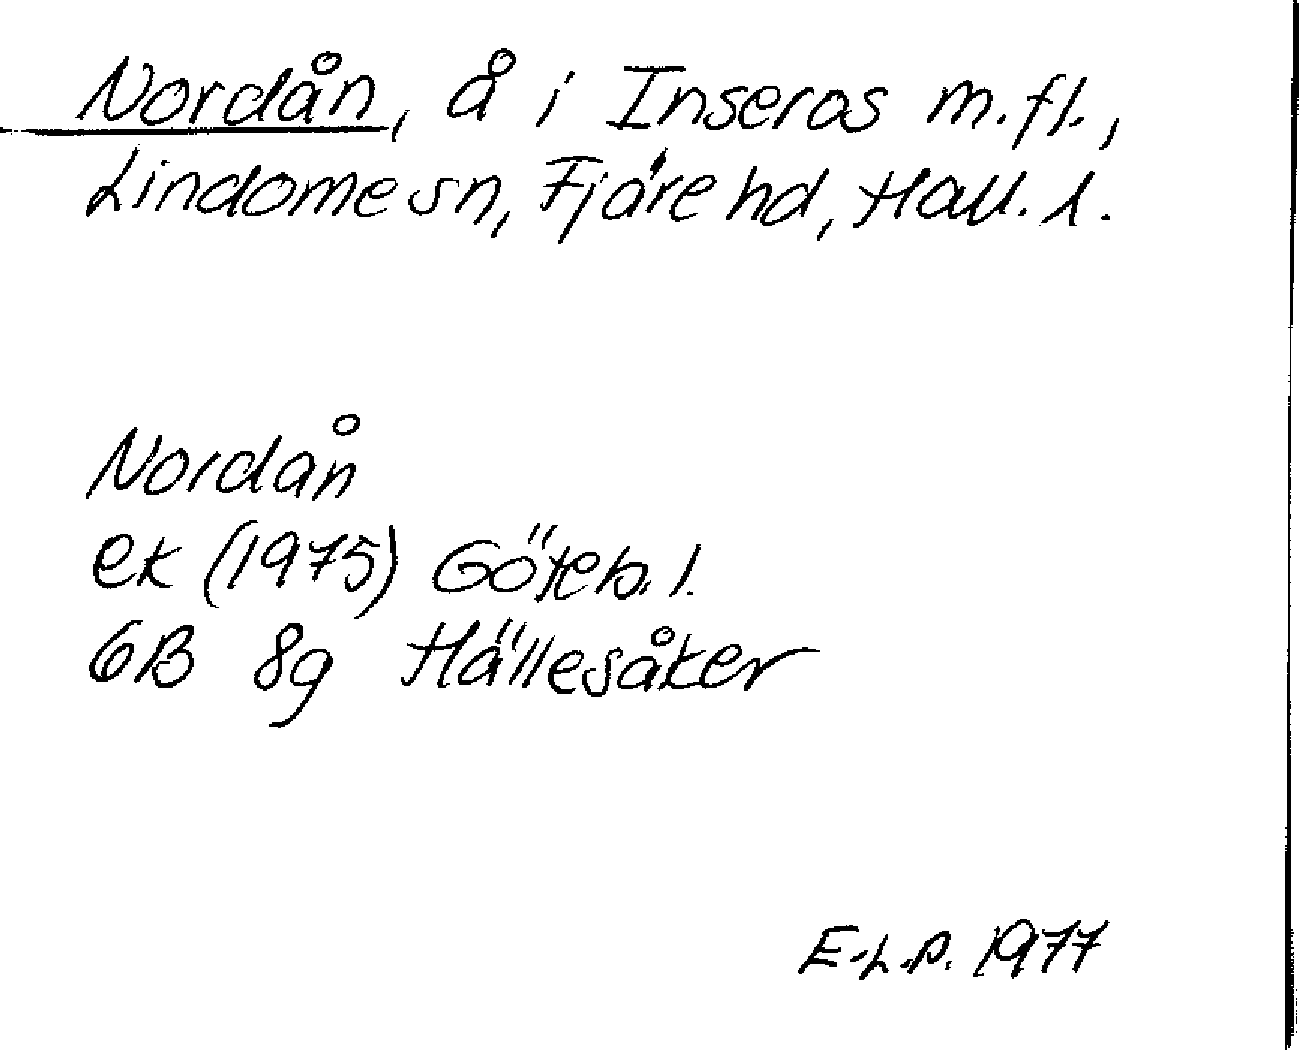 Nordån, å i Inseros m.fl.,
Lindome sn, Fjäre hd, Hall. l.
Nordån
ek (1975) Göteb. l.
6B 8g Hällesåker
E-L.P. 1977